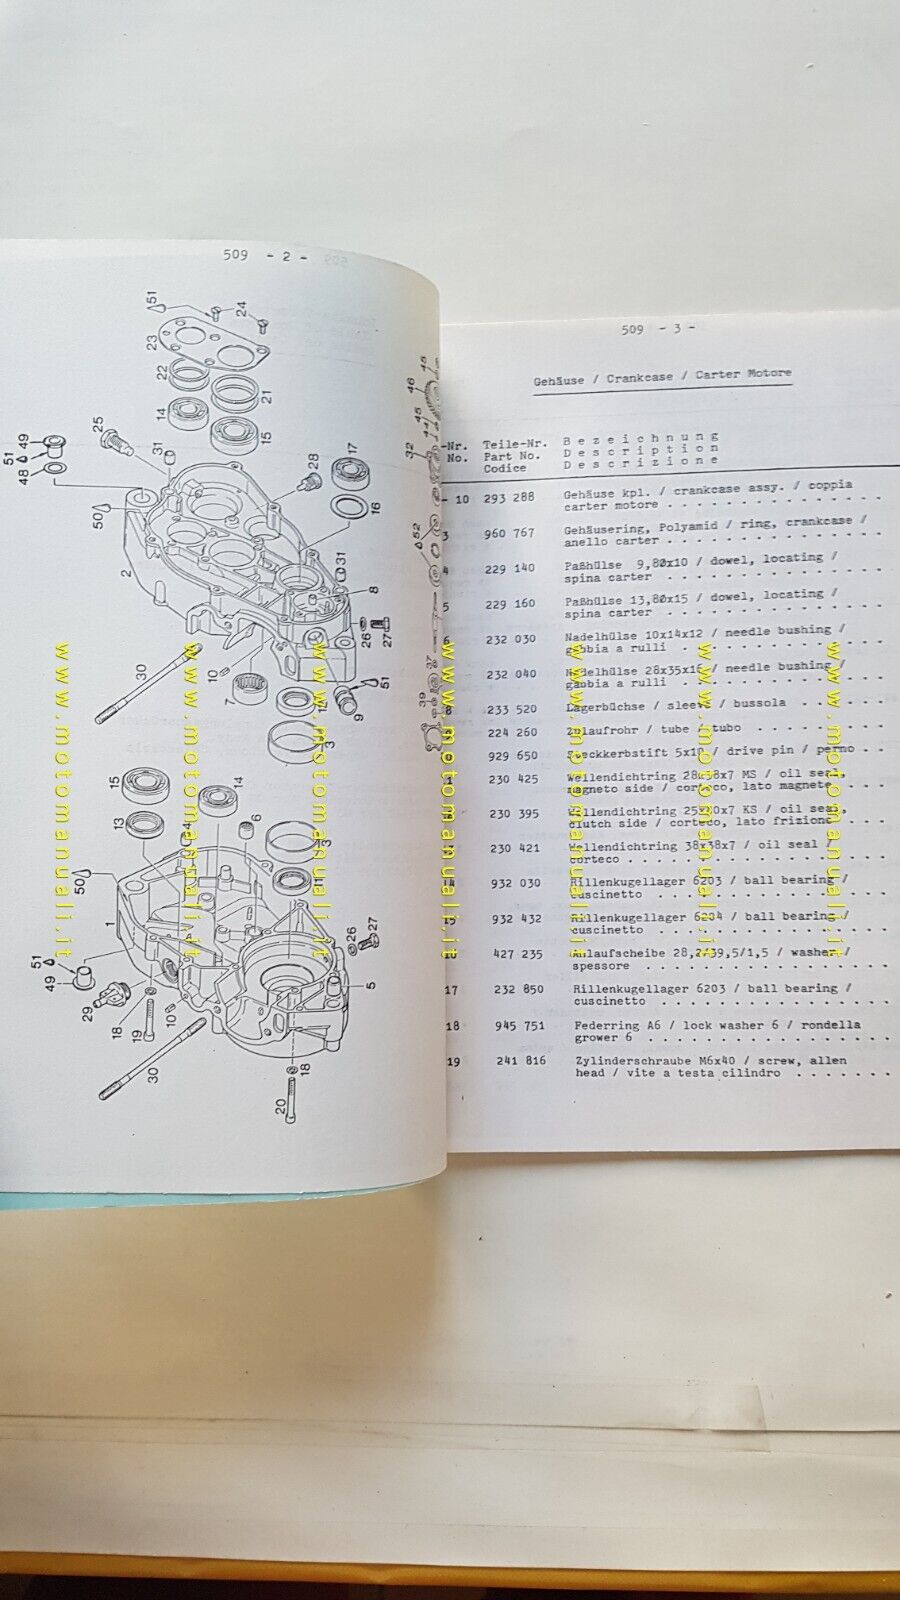 509 - 2 -
51
24
23
22
21
14
15
25
31
49
51
48
50
17
28
16
2
31
8
26
27
30
10
7
12
9
51
3
15
14
13
6
4
3
50
1
11
26
27
51
49
29
18
19
10
5
30
18
20
45
46
45
44
32
52
37
39
509 - 3 -
Gehäuse / Crankcase / Carter Motore
-Nr. Teile-Nr. Bezeichnung
No. Part No. Description
Codice Descrizione
- 10 293 288 Gehäuse kpl. / crankcase assy. / coppia
carter motore
3 960 767 Gehäusering, Polyamid / ring, crankcase /
anello carter
4 229 140 Paßhülse 9,80x10 / dowel, locating /
spina carter
5 229 160 Paßhülse 13,80x15 / dowel, locating /
spina carter
6 232 030 Nadelhülse 10x14x12 / needle bushing /
gabbia a rulli
232 040 Nadelhülse 28x35x16 / needle bushing /
gabbia a rulli
8 233 520 Lagerbüchse / sleeve / bussola
224 260 Zulaufrohr / tube / tubo
929 650 Steckkerbstift 5x10 / drive pin / perno
1 230 425 Wellendichtring 28x38x7 MS / oil seal,
magneto side / corteco, lato magnete
230 395 Wellendichtring KS / oil seal,
clutch side / corteco, lato frizione
230 421 Wellendichtring 38x38x7 / oil seal /
corteco
14 932 030 Rillenkugellager 6203 / ball bearing /
cuscinetto
15 932 432 Rillenkugellager 6204 / ball bearing /
cuscinetto
427 235 Anlaufscheibe 28,2/39,5/1,5 / washer /
spessore
17 232 850 Rillenkugellager 6203 / ball bearing /
cuscinetto
18 945 751 Federring A6 / lock washer 6 / rondella
grower 6
19 241 816 Zylinderschraube M6x40 / screw, allen
head / vite a testa cilindro
www.motomanuali.it
www.motomanuali.it
www.motomanuali.it
www.motomanuali.it
www.motomanuali.it
www.motomanuali.it
www.motomanuali.it